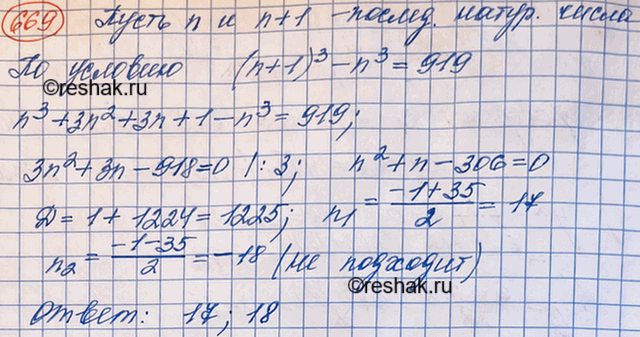 669 Пусть n и n+1 - послед. натур. числа
По условию (n+1)³ - n³ = 919
©reshak.ru
n³ + 3n² + 3n + 1 - n³ = 919;
3n² + 3n - 918 = 0 |: 3; n² + n - 306 = 0
Д = 1 + 1224 = 1225; n₁ = \frac{-1+35}{2} = 17
n₂ = \frac{-1-35}{2} = -18 (не подходит)
©reshak.ru
Ответ: 17; 18